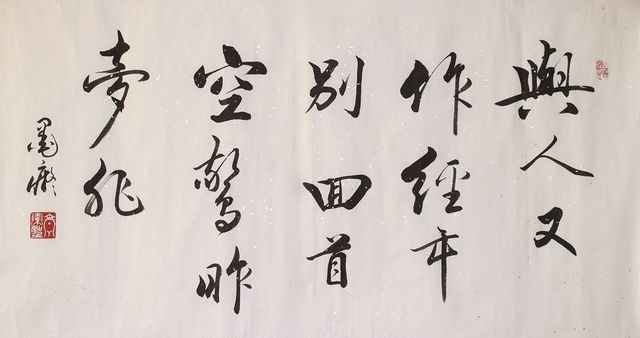 與人又
作經年
别回首
空驚昨
夢非
墨